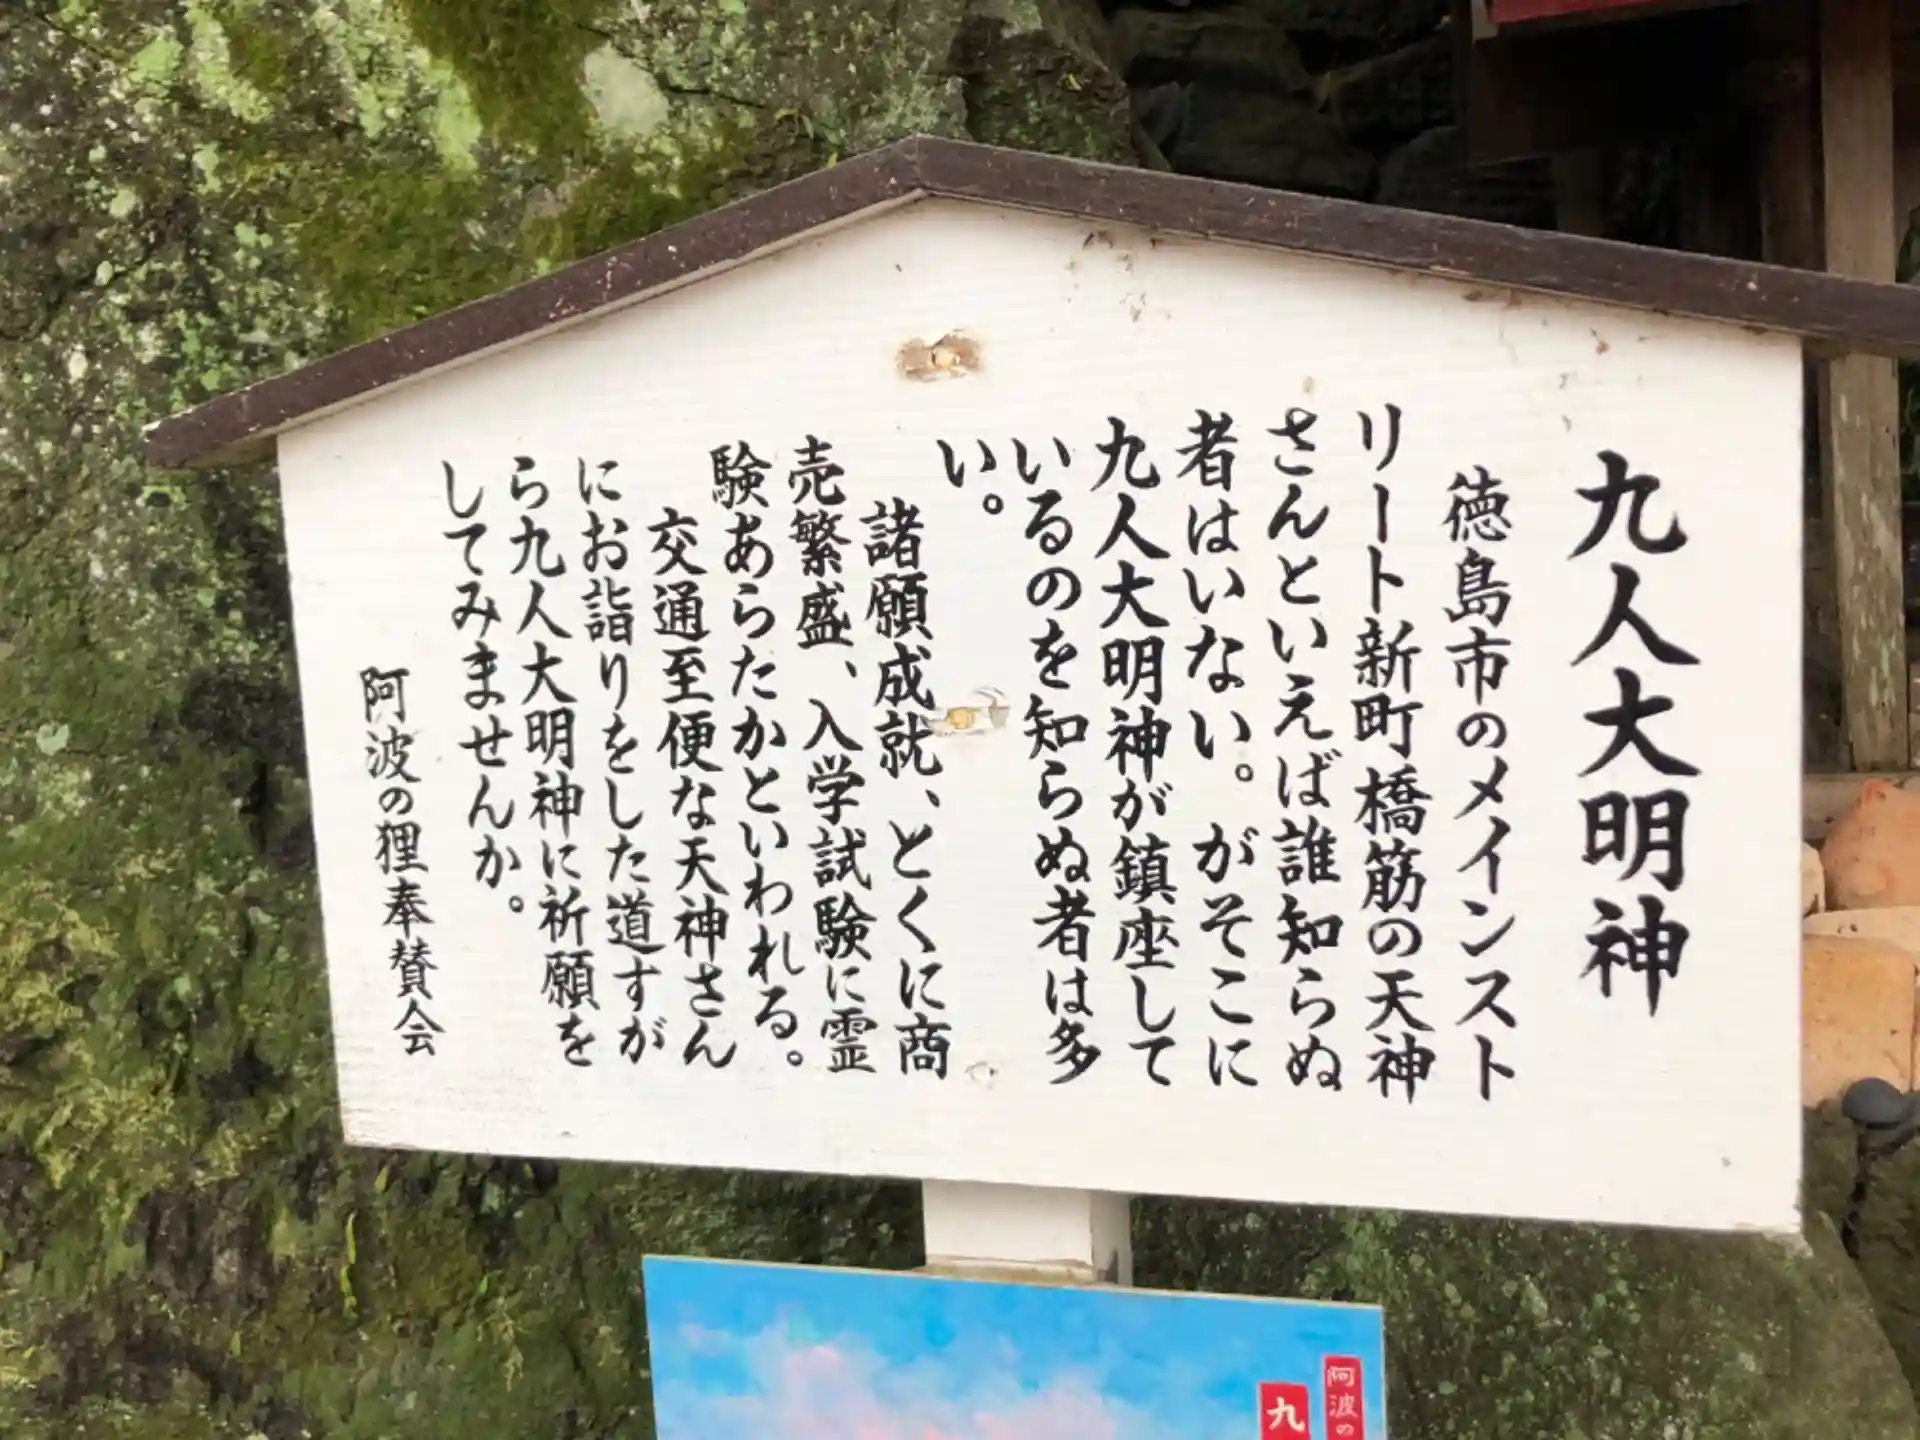 九人大明神
徳島市のメインスト
リート新町橋筋の天神
さんといえば誰知らぬ
者はいない。がそこに
九人大明神が鎮座して
いるのを知らぬ者は多
い。
諸願成就、とくに商
売繁盛、入学試験に霊
験あらたかといわれる。
交通至便な天神さん
にお詣りをした道すが
ら九人大明神に祈願を
してみませんか。
阿波の狸奉賛会
阿波の
九